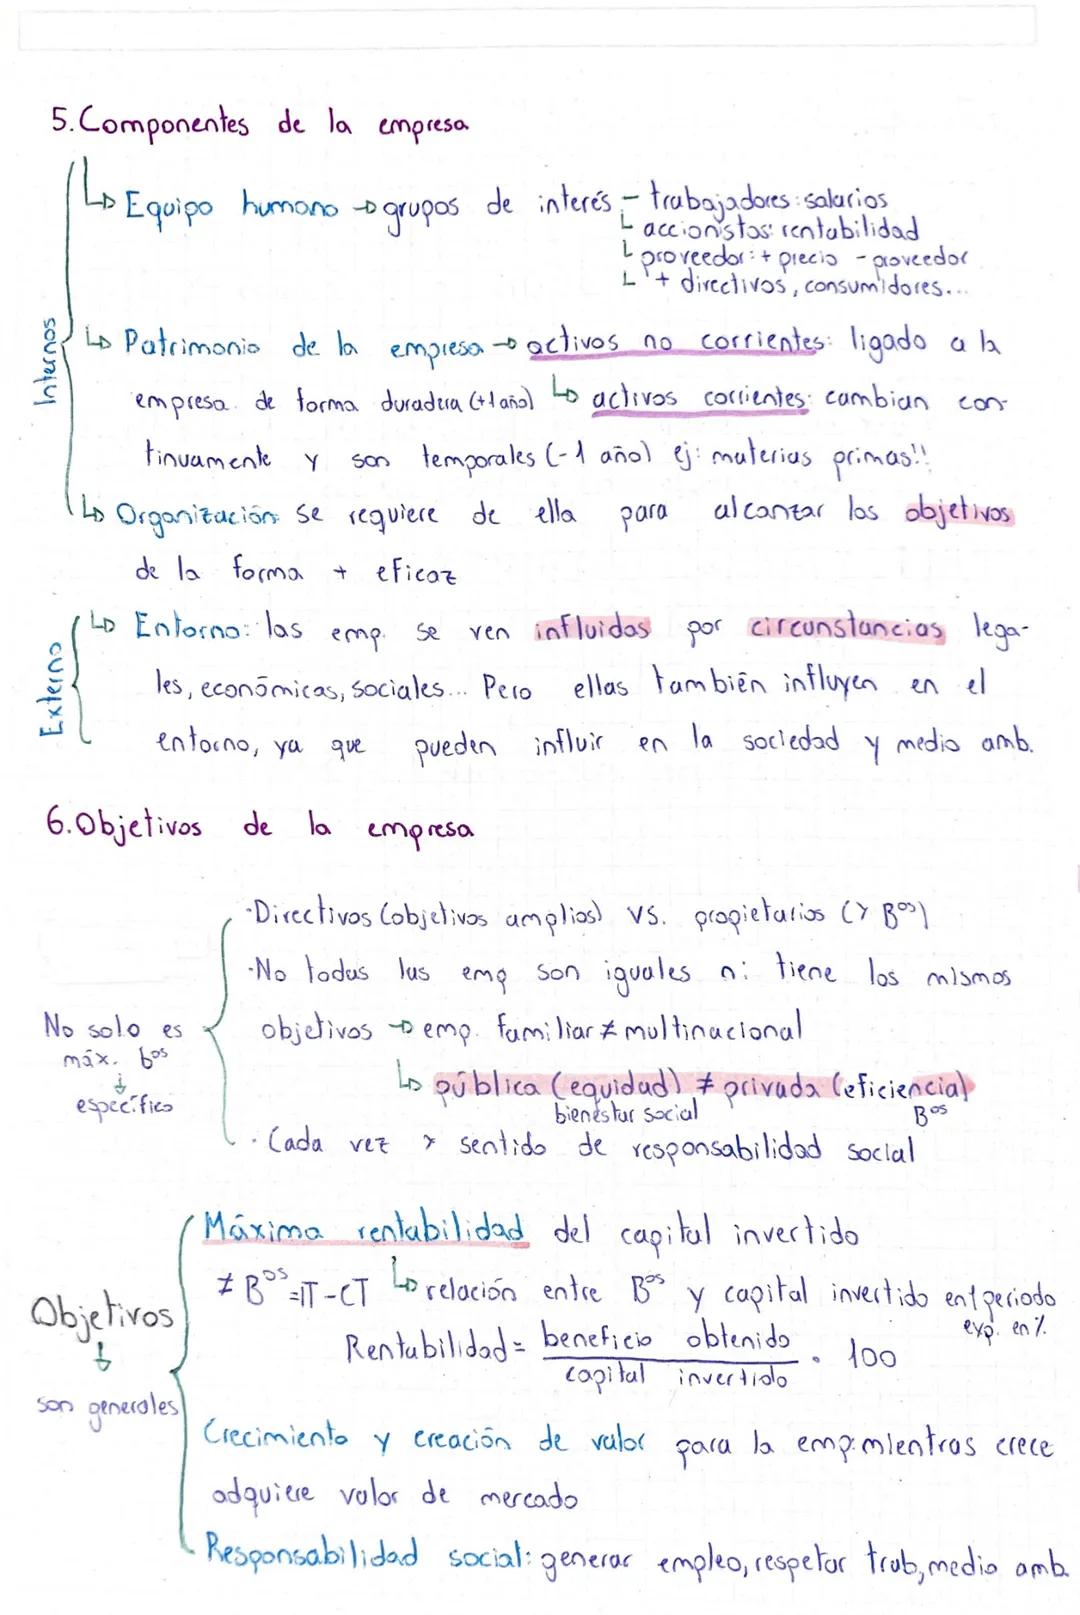 5. Componentes de la empresa
Internos
↳ Equipo humano → grupos de interés - trabajadores: salarios
└ accionistas: rentabilidad
└ proveedor: + precio - proveedor
└ + directivos, consumidores...
↳ Patrimonio de la empresa → activos no corrientes: ligado a la
empresa de forma duradera (+1 año) ↳ activos corrientes: cambian con-
tinuamente y son temporales (-1 año) ej: materias primas!!
↳ Organización: se requiere de ella para alcanzar los objetivos
de la forma + eficaz
Externo
↳ Entorno: las emp. se ven influidas por circunstancias lega-
les, económicas, sociales... Pero ellas también influyen en el
entorno, ya que pueden influir en la sociedad y medio amb.
6. Objetivos de la empresa
No solo es
máx. bos
↓
específico
· Directivos (objetivos amplios) vs. propietarios (> Bos)
· No todas las emp son iguales ni tiene los mismos
objetivos → emp. familiar ≠ multinacional
↳ pública (equidad) ≠ privada (eficiencia)
bienestar social Bos
· Cada vez > sentido de responsabilidad social
Objetivos
↓
son generales
Máxima rentabilidad del capital invertido
≠ Bos = IT - CT ↳ relación entre Bos y capital invertido en 1 periodo
exp. en %
Rentabilidad = beneficio obtenido / capital invertido · 100
Crecimiento y creación de valor para la emp: mientras crece
adquiere valor de mercado
Responsabilidad social: generar empleo, respetar trab, medio amb.